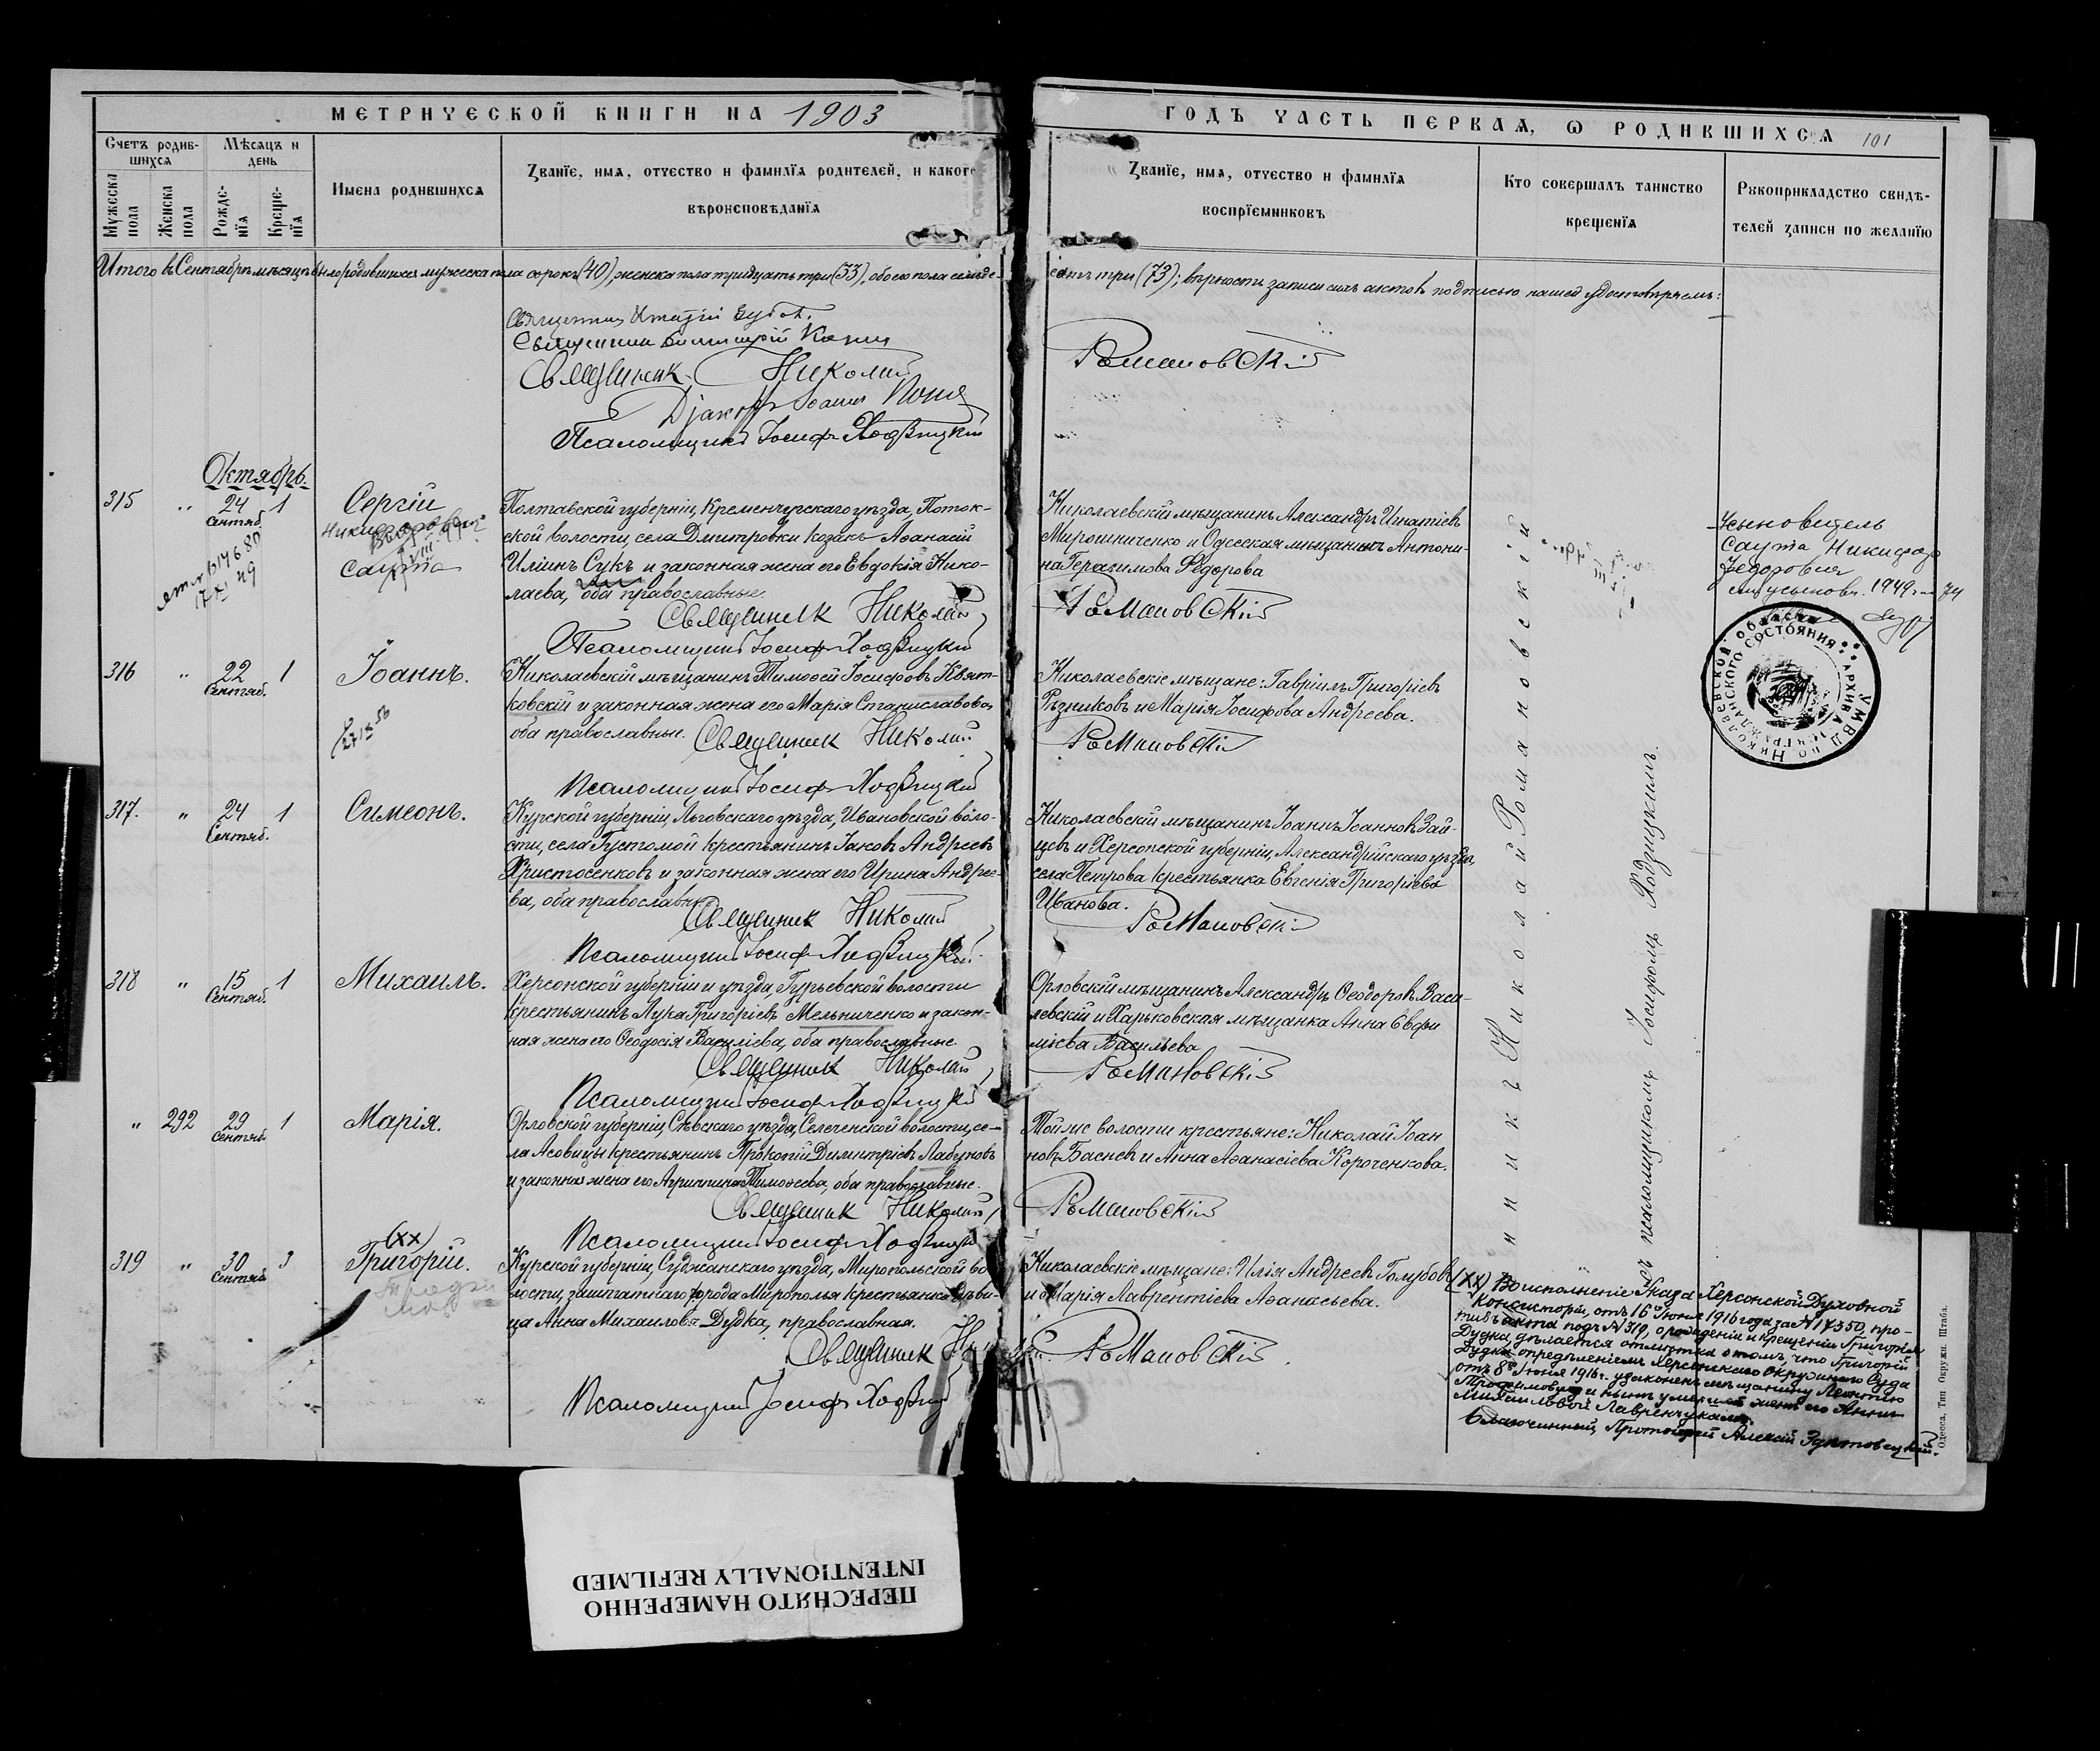 МЕТРИЧЕСКОЙ КНИГИ НА 1903
ГОДЪ ЧАСТЬ ПЕРВАЯ, Ѡ РОДИВШИХСЯ 101
Счетъ родив-
шихся
Мѣсяцъ и
день
Мужеска
пола
Женска
пола
Рожде-
нїя
Креще-
нїя
Имена родившихся
Званїе, имя, отчество и фамилїя родителей, и какого
вѣроисповѣданїя
Званїе, имя, отчество и фамилїя
воспрїемниковъ
Кто совершалъ таинство
крещенїя
Рукоприкладство свидѣ-
телей записи по желанїю
Итого въ Сентябрѣ мѣсяцѣ было родившихся мужеска пола сорокъ (40), женска пола тридцать три (33), обоего пола семьде-
сятъ три (73); вѣрность записи сихъ актовъ подписью нашею удостовѣряемъ:
Священникъ
Священникъ
Священник Николай Романовскій
Діаконъ Іоаннъ
Псаломщикъ Іосифъ Ходзицкій
Октябрь.
315 " 24 Сентяб. 1
Сергій
Никифорович
Саута
17 XI 49
Полтавской губерніи, Кременчугскаго уѣзда, Поток-
ской волости, села Дмитровки козакъ Аѳанасій
Иліинъ Сукъ и законная жена его Евдокія Нико-
лаева, оба православные.
Священик Николай Романовскій
Псаломщикъ Іосифъ Ходзицкій
Николаевскій мѣщанинъ Александръ Игнатіевъ
Мирошниченко и Одесская мѣщанинъ Антони-
на Герасимова Ѳедорова
Усыновитель
Саута Никифор
Федорович
усыновл. 1949
316 " 22 Сентяб. 1
Іоаннъ.
Николаевскій мѣщанинъ Тимоѳей Іосифовъ Квят-
ковскій и законная жена его Марія Станиславова,
оба православные. Священик Николай Романовскій
Псаломщикъ Іосифъ Ходзицкій
Николаевскіе мѣщане: Гавріилъ Григоріевъ
Рѣзниковъ и Марія Іосифова Андреева.
Николаевской области
УМВД по
архива
гражданского состояния
317. " 24 Сентяб. 1
Симеонъ.
Курской губерніи, Льговскаго уѣзда, Ивановской воло-
сти, села Густомой крестьянинъ Іаковъ Андреевъ
Христосенковъ и законная жена его Ирина Андрее-
ва, оба православн.
Священик Николай Романовскій
Псаломщикъ Іосифъ Ходзицкій
Николаевскій мѣщанинъ Іоаннъ Іоанновъ Зай-
цевъ и Херсонской губерніи, Александрійскаго уѣзда,
села Петрова крестьянка Евгенія Григоріева
Иванова.
318 " 15 Сентяб. 1
Михаилъ.
Херсонской губерніи и уѣзда, Гурьевской волости
крестьянинъ Лука Григоріевъ Мельниченко и закон-
ная жена его Ѳеодосія Василіева, оба православные
Священик Николай Романовскій
Псаломщикъ Іосифъ Ходзицкій
Орловскій мѣщанинъ Александръ Ѳеодоровъ Васи-
левскій и Харьковская мѣщанка Анна Евфи
міева Васильева
" 292 29 Сентяб. 1
Марія.
Орловской губерніи, Сѣвскаго уѣзда, Селеченской волости, се-
ла Асовицы крестьянинъ Прокопій Димитріевъ Лабуновъ
и законная жена его Агриппина Тимоѳеева, оба православные.
Священик Николай Романовскій
Псаломщикъ Іосифъ Ходзицкій
Той же волости крестьяне: Николай Іоан
новъ Басневъ и Анна Аѳанасіева Короченкова.
319 " 30 Сентяб. 3
(ХХ)
Григорій.
Курской губерніи, Суджанскаго уѣзда, Миропольской во
лости, заштатнаго города Мирополья крестьянка дѣви-
ца Анна Михаилова Дудка, православная.
Священик Николай Романовскій
Псаломщикъ Іосифъ Ходзицкій
Николаевскіе мѣщане: Илія Андреевъ Голубовъ
и Марія Лаврентіева Аѳанасьева.
Николай Романовскій
съ псаломщикомъ Іосифомъ Ходзицкимъ.
(ХХ) Во исполненіе Указа Херсонской Духовной
Консисторіи, отъ 16 Іюня 1916 года за № 17350, про-
тивъ акта подъ № 319, о рожденіи и крещеніи Григорія
Дудка дѣлается отмѣтка о томъ, что Григорій
Дудка опредѣленіемъ Херсонскаго Окружнаго Суда
отъ 8го Іюня 1916 г. узаконенъ мѣщанину Леонтію
Трофимовичу и нынѣ умершей женѣ его Аннѣ
Михаиловой Лавренчукамъ.
Благочинный, Протоіерей Алексій
Одесса, Тип. Окружн. Штаба.
ПЕРЕСНЯТО НАМЕРЕННО
INTENTIONALLY REFILMED